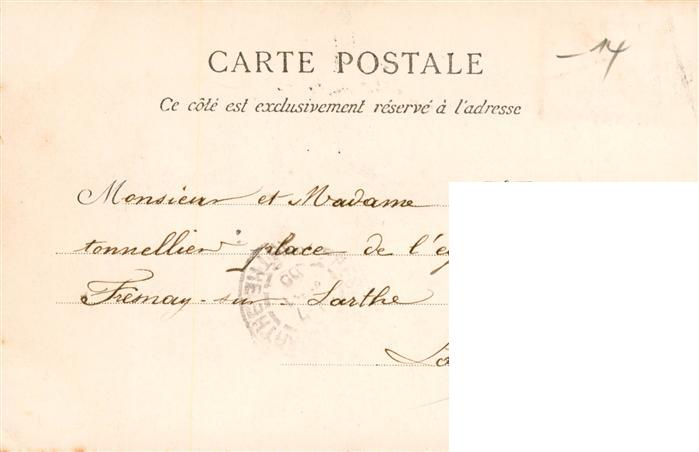 CARTE POSTALE
-14
Ce côté est exclusivement réservé à l'adresse
Monsieur et Madame
tonnellier place de l'ég
Fresnay-sur-Sarthe